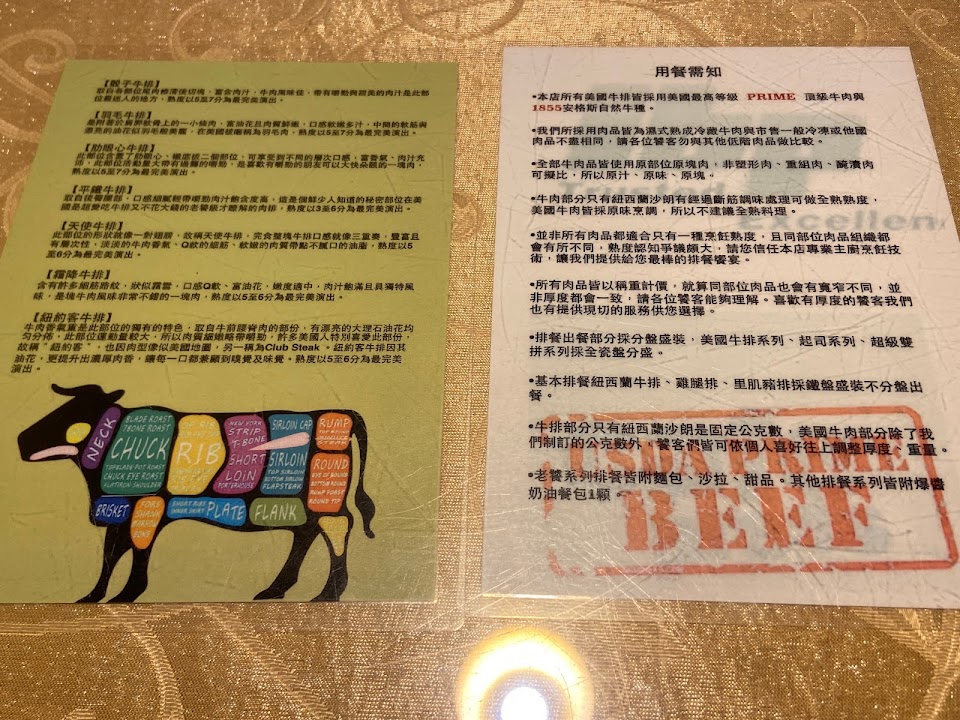 【骰子牛排】
取自各部位尾肉修清後切塊，富含肉汁，牛肉風味佳，帶有嚼勁與甜美的肉汁是此部
位最迷人的地方，熟度以5至7分為最完美演出。
【羽毛牛排】
是附著於肩胛軟骨上的一小條肉，富油花且肉質鮮嫩，口感軟嫩多汁，中間的軟筋與
漂亮的油花似羽毛般美麗，在美國被廠稱為羽毛肉，熟度以5至7分為最完美演出。
【肋眼心牛排】
此部位含蓋了肋眼心、嫩蓋
二個部位，可享受到不同的層次口感，富香氣、肉汁充
沛，此部位活動量大帶有適難的嚼勁，是喜歡有嚼勁的朋友可以大快朵頤的一塊肉，
熟度以5至7分為最完美演出。
【平鐵牛排】
取自後臀腰部，口感細膩輕帶嚼勁肉汁飽含度高，這是個鮮少人知道的秘密部位在美
國是超愛吃牛排又不花大錢的老饕級才瞭解的肉排，熟度以3至6分為最完美演出。
【天使牛排】
此部位的形狀就像一對翅膀，故稱天使牛排，完食整塊牛排口感就像三重奏，豐富且
有層次性，淡淡的牛肉香氣、Q軟的細筋、軟嫩的肉質帶點不膩口的油脂，熟度以5
至6分為最完美演出。
【霜降牛排】
含有許多細筋路紋，狀似霧雪，口感Q軟，富油花，嫩度適中，肉汁飽滿且具獨特風
味，是塊牛肉風味非常不錯的一塊肉，熟度以5至6分為最完美演出。
【紐約客牛排】
牛肉香氣重是此部位的獨有的特色，取自牛前腰脊肉的部份，有漂亮的大理石油花均
勻分佈，此部位運動量較大，所以肉質細嫩略帶嚼勁，許多美國人特別喜愛此部份，
故稱"紐約客"，也因肉型像似美國地圖，另一稱為Club Steak。紐約客牛排因其
油花，更提升出濃厚肉香，讓每一口都兼顧到嗅覺及味覺。熟度以5至6分為最完美
演出。
NECK
BLADE ROAST
7BONE ROAST
CHUCK
TOPBLADE POT ROAST
CHUCK EYE ROAST
FLATIRON SHOULDER
RIB
NEW YORK
STRIP
T-BONE
SHORT
LOIN
PORTERHOUSE
SIRLOIN CAP
SIRLOIN
TOP SIRLOIN
BOTTOM SIRLOIN
FLAPSTEAK
RUMP
ROUND
EYE OF ROUND
BOTTOM ROUND
RUMP ROAST
ROUND TIP
BRISKET
FORE
SHANK
MARROW
BONE
SHORT RIBS
INNER SKIRT
PLATE
FLANK
用餐需知
•本店所有美國牛排皆採用美國最高等級 PRIME 頂級牛肉與
1855安格斯自然牛種。
•我們所採用肉品皆為濕式熟成冷藏牛肉與市售一般冷凍或他國
肉品不盡相同，請各位饕客勿與其他低階肉品做比較。
•全部牛肉品皆使用原部位原塊肉，非塑形肉、重組肉、醃漬肉
可擬比，所以原汁、原味、原塊。
•牛肉部分只有紐西蘭沙朗有經過斷筋調味處理可做全熟熟度，
美國牛肉皆採原味烹調，所以不建議全熟料理。
•並非所有肉品都適合只有一種烹飪熟度，且同部位肉品組織都
會有所不同，熟度認知爭議頗大，請您信任本店專業主廚烹飪技
術，讓我們提供給您最棒的排餐饗宴。
•所有肉品皆以稱重計價，就算同部位肉品也會有寬窄不同，並
非厚度都會一致，請各位饕客能夠理解。喜歡有厚度的饕客我們
也有提供現切的服務供您選擇。
•排餐出餐部分採分盤盛裝，美國牛排系列、起司系列、超級雙
拼系列採全瓷盤分盛。
•基本排餐紐西蘭牛排、雞腿排、里肌豬排採鐵盤盛裝不分盤出
餐。
•牛排部分只有紐西蘭沙朗是固定公克數，美國牛肉部分除了我
們制訂的公克數外，饕客們皆可依個人喜好往上調整厚度、重量。
•老饕系列排餐皆附麵包、沙拉、甜品。其他排餐系列皆附爆醬
奶油餐包1顆。
Trusted
Excellen
USDA PRIME
BEEF